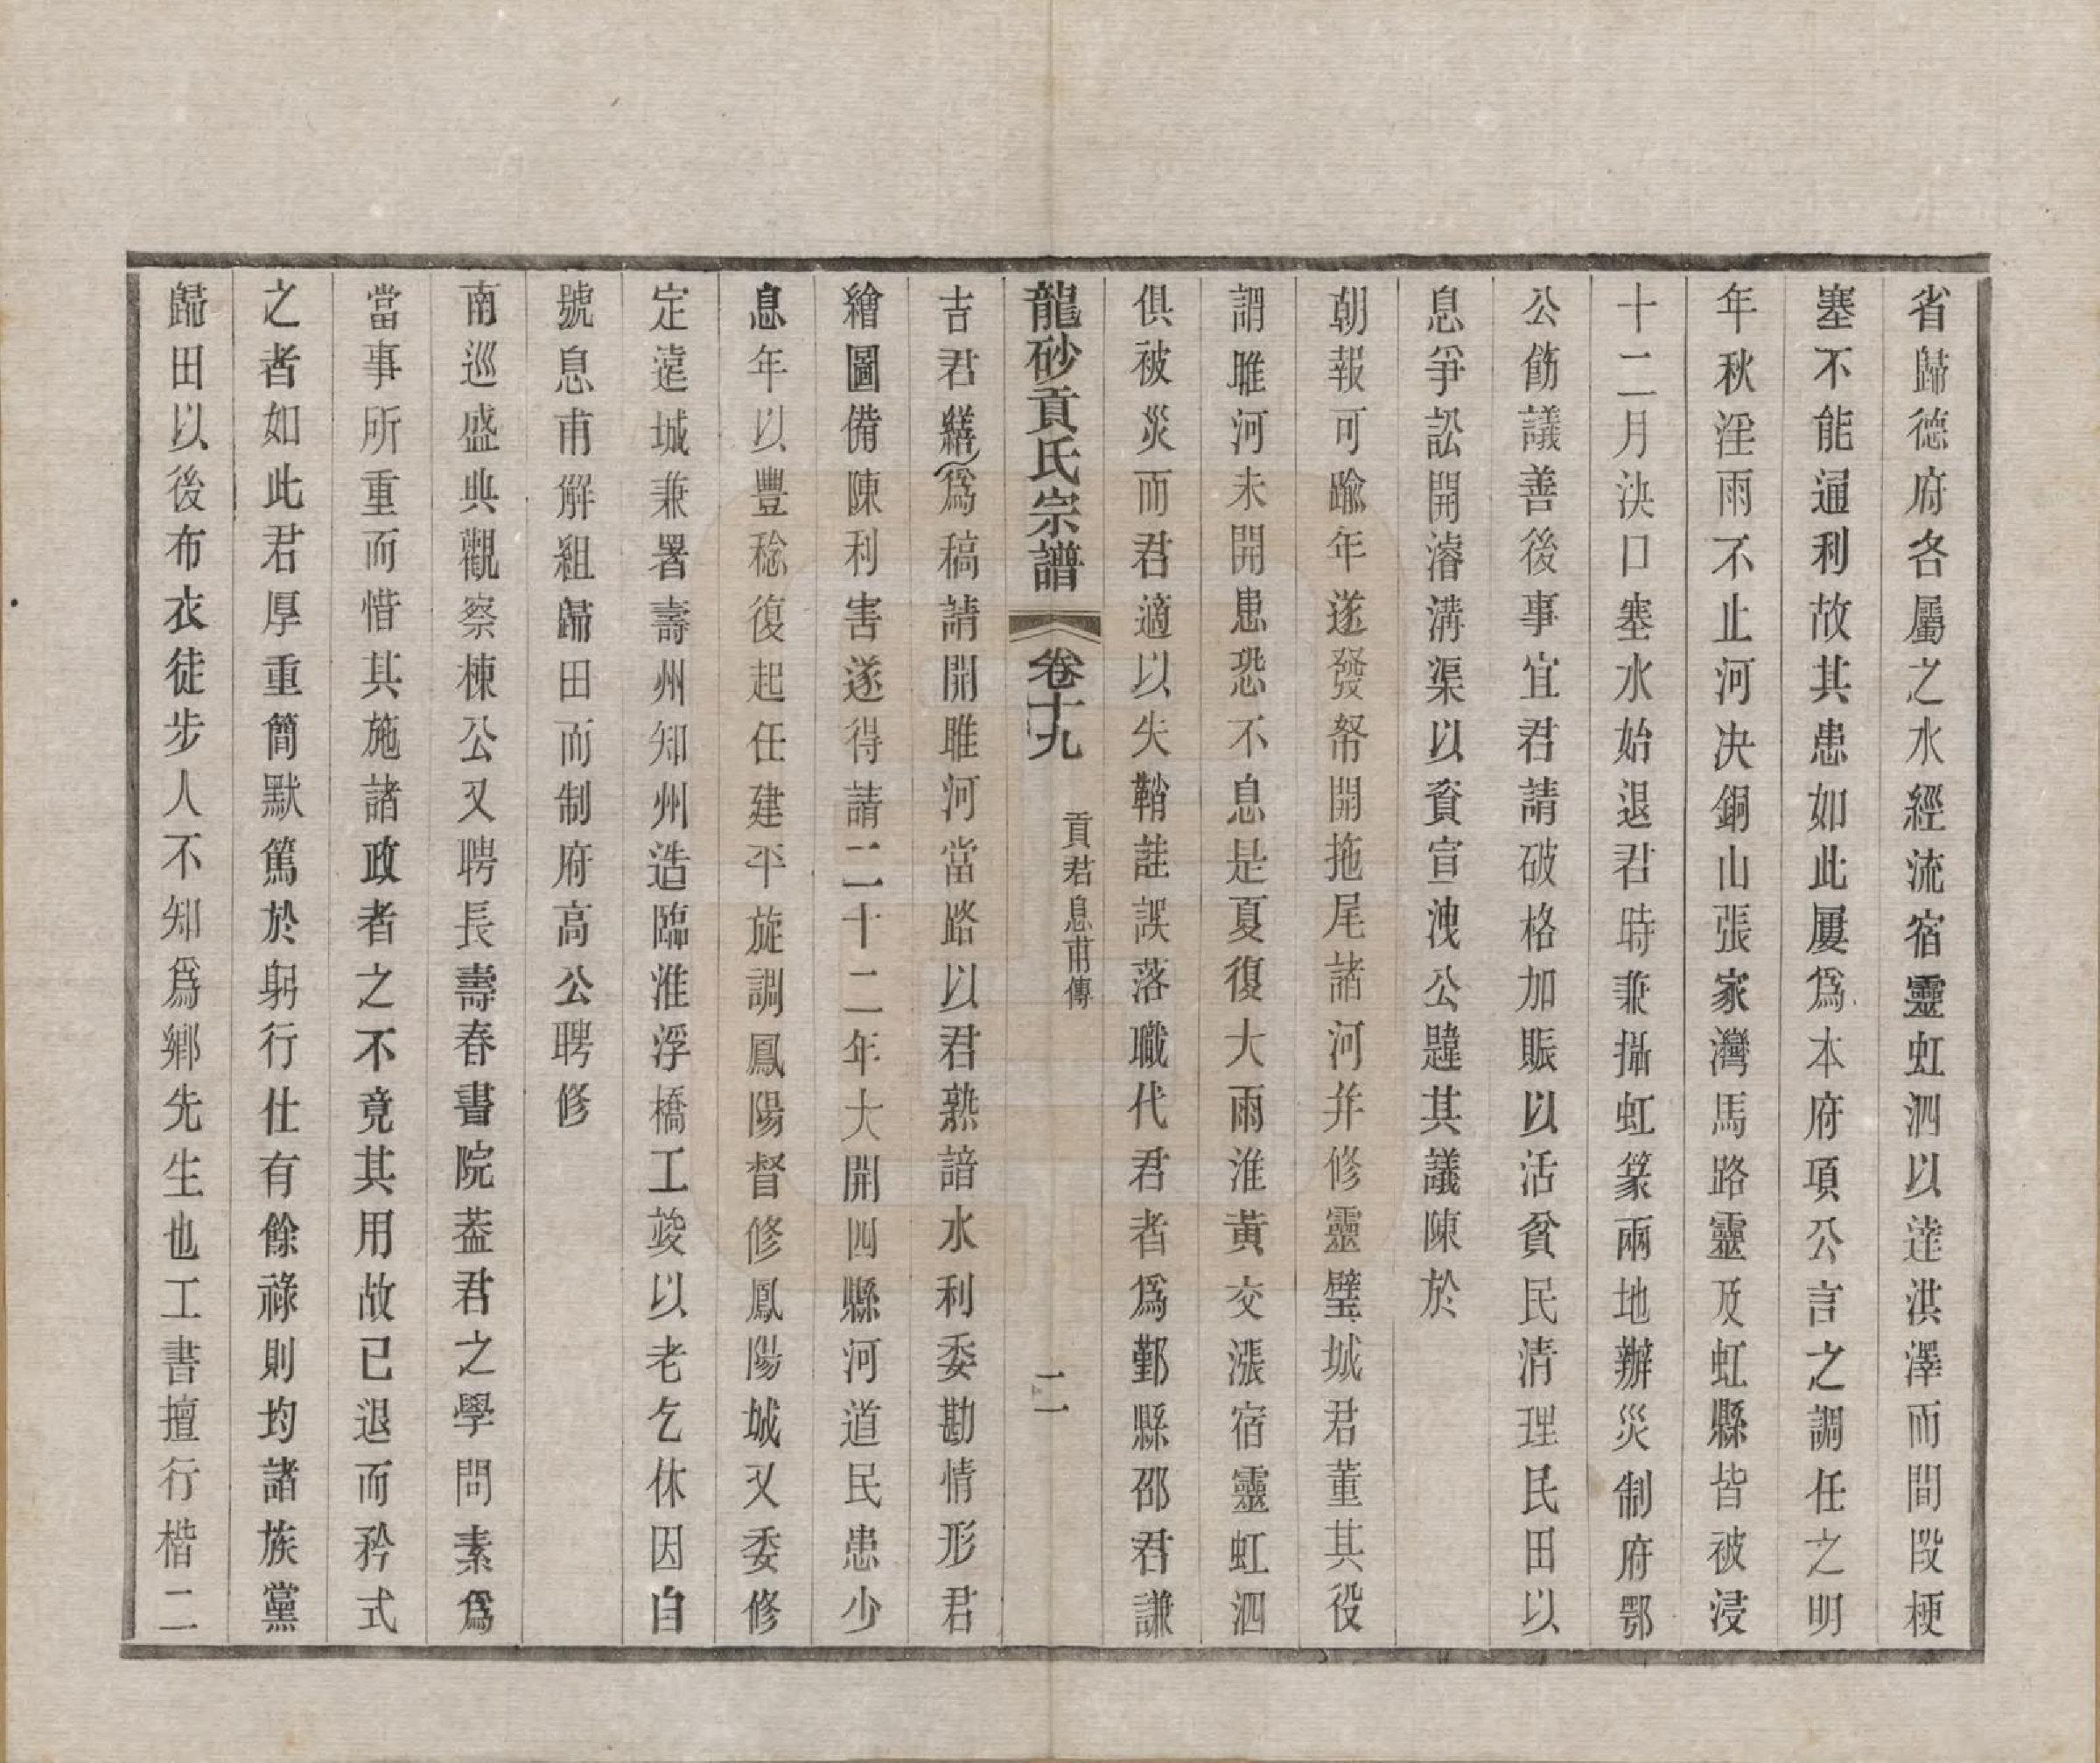 省歸德府各屬之水經流宿靈虹泗以達洪澤而間段梗
塞不能通利故其患如此屢爲本府項公言之調任之明
年秋淫雨不止河决銅山張家灣馬路靈及虹縣皆被浸
十二月決口塞水始退君時兼攝虹篆兩地辦災制府鄂
公飭議善後事宜君請破格加賑以活貧民清理民田以
息爭訟開濬溝渠以資宣洩公韙其議陳於
朝報可踰年遂發帑開拖尾諸河并修靈璧城君董其役
謂睢河未開患恐不息是夏復大雨淮黃交漲宿靈虹泗
俱被災而君適以失鞘詿誤落職代君者爲鄞縣邵君謙
龍砂貢氏宗譜 卷十九 貢君息甫傳 二
吉君繕爲稿請開睢河當路以君熟諳水利委勘情形君
繪圖備陳利害遂得請二十二年大開四縣河道民患少
息年以豐稔復起任建平旋調鳳陽督修鳳陽城又委修
定遠城兼署壽州知州造臨淮浮橋工竣以老乞休因自
號息甫解組歸田而制府高公聘修
南巡盛典觀察棟公又聘長壽春書院葢君之學問素爲
當事所重而惜其施諸政者之不竟其用故已退而矜式
之者如此君厚重簡默篤於躬行仕有餘祿則均諸族黨
歸田以後布衣徒步人不知爲鄉先生也工書擅行楷二